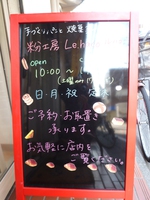 手づくりパンと焼菓
粉工房 Le.h
open
10:00 ~
(土曜
日・月・祝 定
ご予約・お取置き
承ります。
お気軽に店内を
ご覧ください。